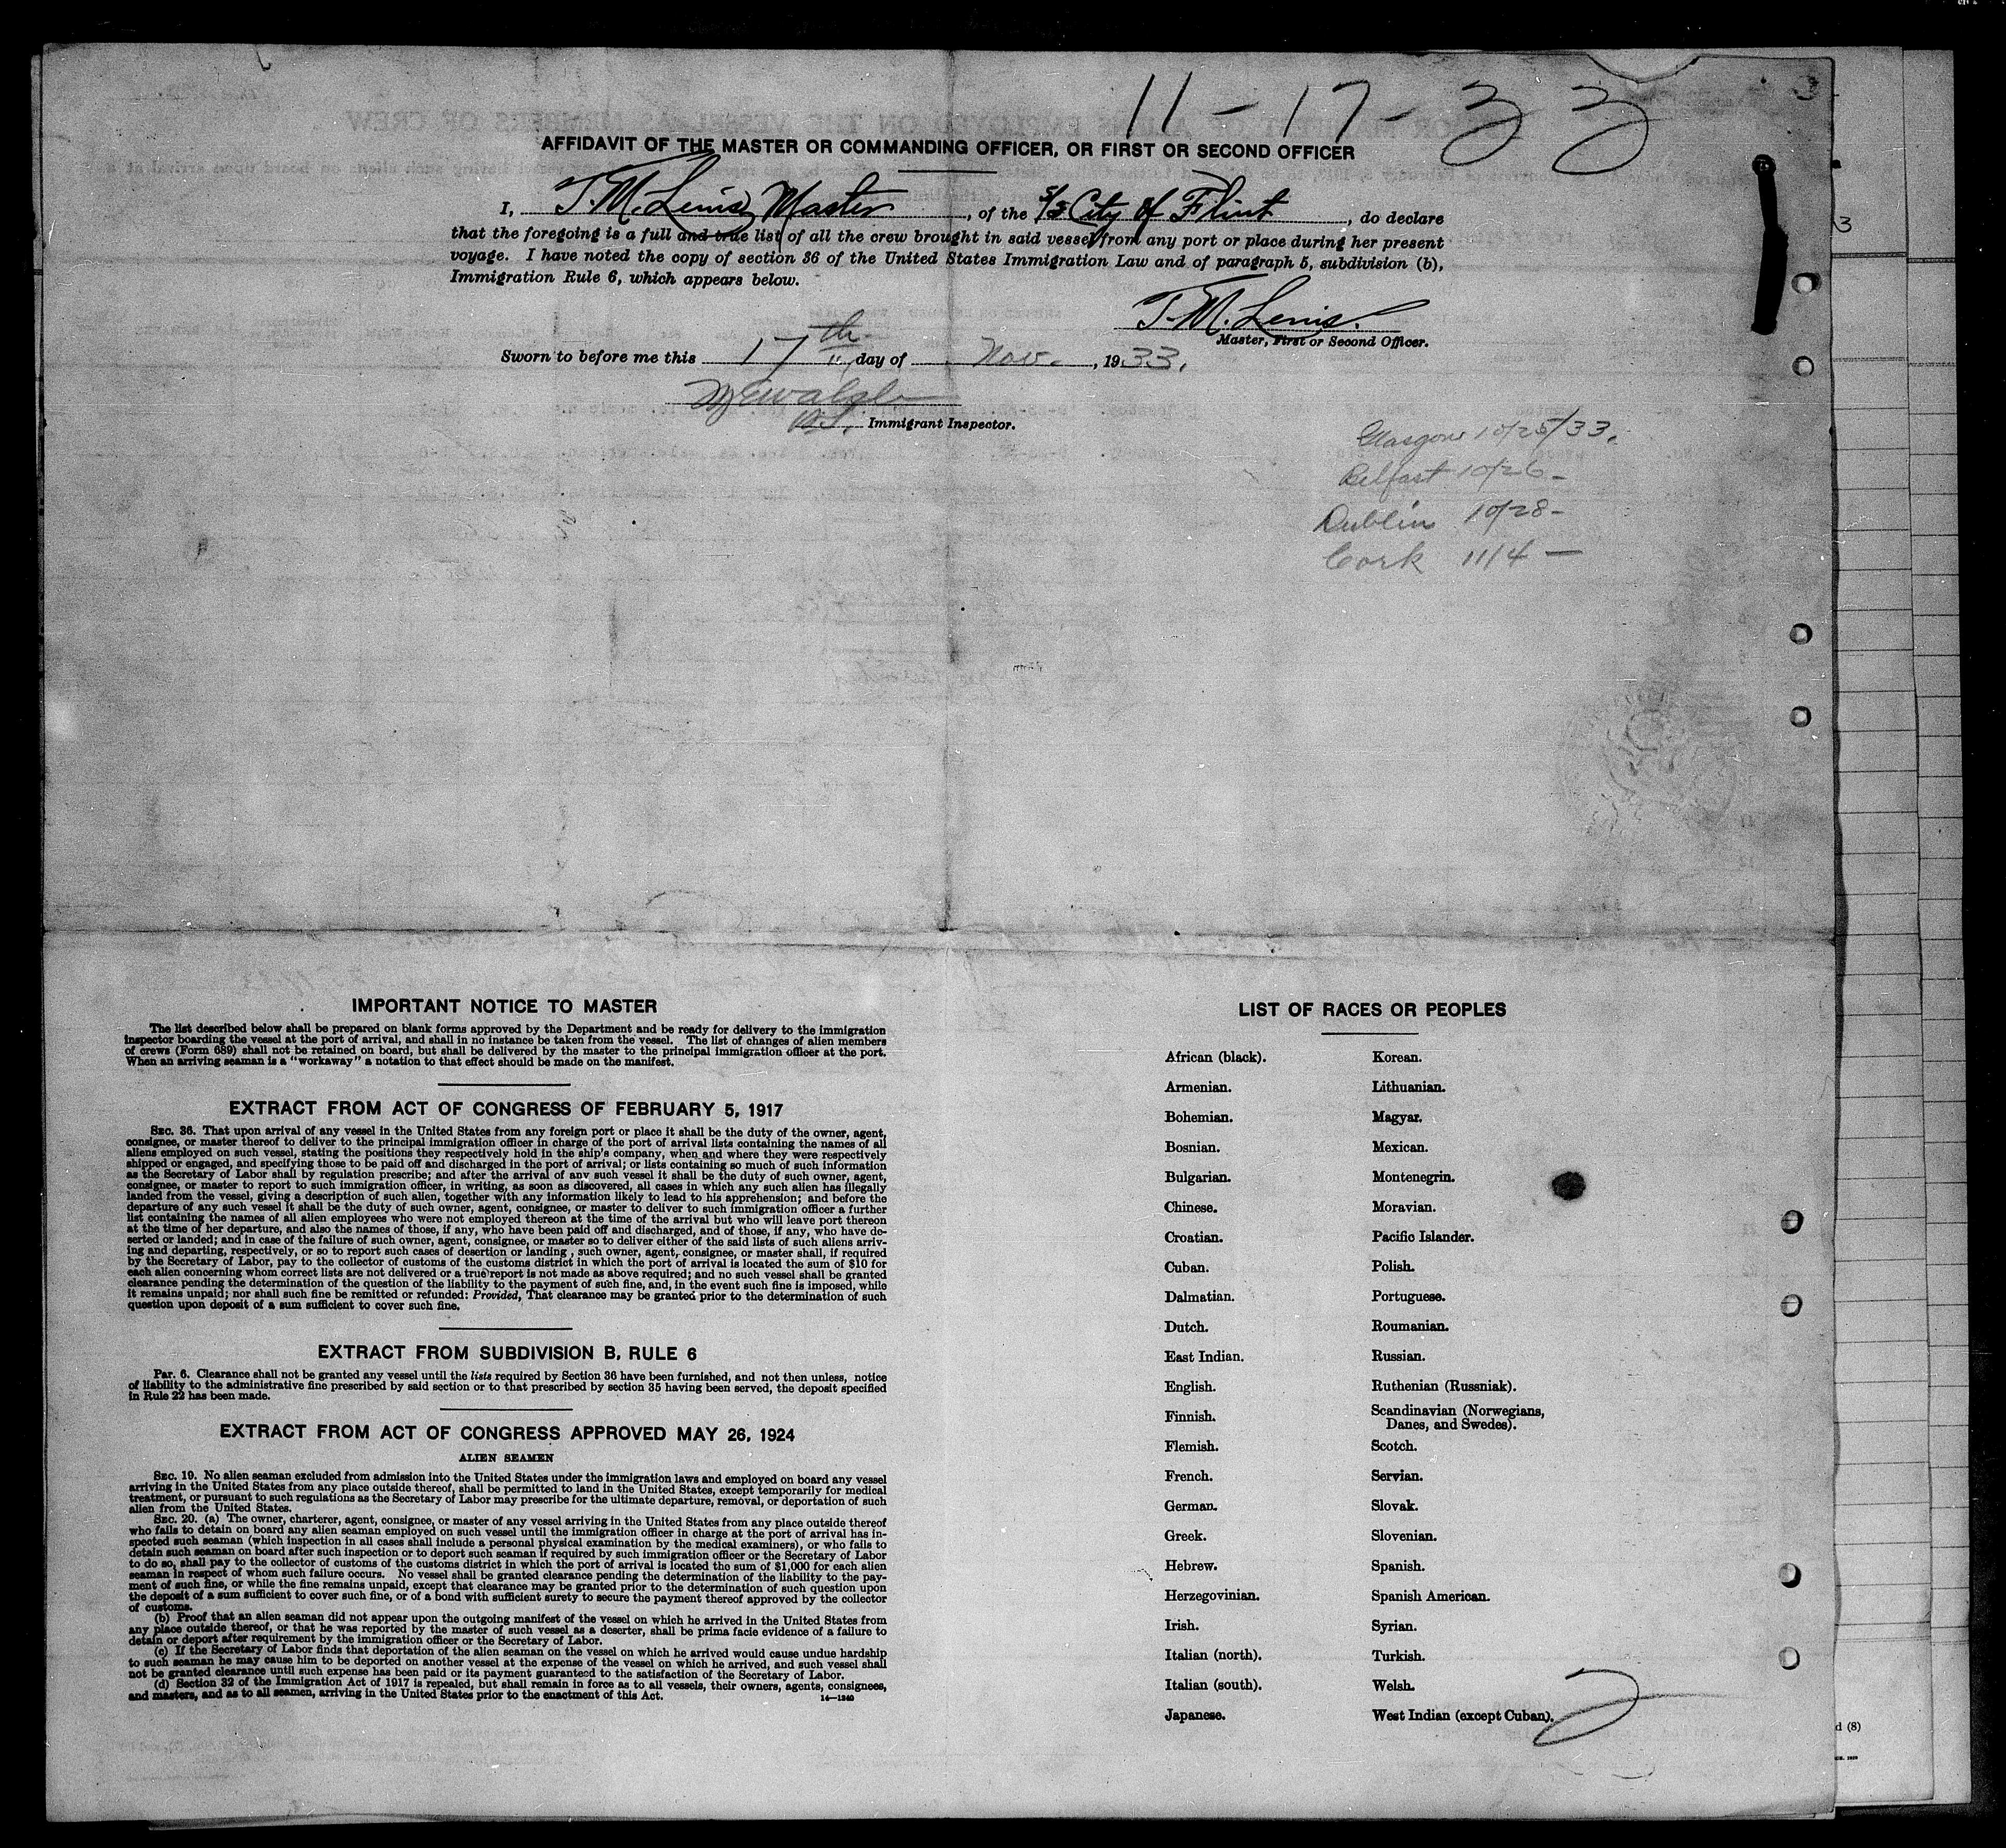 11-17-33
AFFIDAVIT OF THE MASTER OR COMMANDING OFFICER, OR FIRST OR SECOND OFFICER
I, T. M. Lewis, Master, of the S/S City of Flint, do declare
that the foregoing is a full and true list of all the crew brought in said vessel from any port or place during her present
voyage. I have noted the copy of section 36 of the United States Immigration Law and of paragraph 5, subdivision (b),
Immigration Rule 6, which appears below.
T. M. Lewis.
Master, First or Second Officer.
Sworn to before me this 17th day of Nov., 1933.
Immigrant Inspector.
Glasgow 10/25/33.
Belfast 10/26-
Dublin 10/28-
Cork 11/4-
IMPORTANT NOTICE TO MASTER
The list described below shall be prepared on blank forms approved by the Department and be ready for delivery to the immigration
inspector boarding the vessel at the port of arrival, and shall in no instance be taken from the vessel. The list of changes of alien members
of crews (Form 689) shall not be retained on board, but shall be delivered by the master to the principal immigration officer at the port.
When an arriving seaman is a "workaway" a notation to that effect should be made on the manifest.
EXTRACT FROM ACT OF CONGRESS OF FEBRUARY 5, 1917
SEC. 36. That upon arrival of any vessel in the United States from any foreign port or place it shall be the duty of the owner, agent,
consignee, or master thereof to deliver to the principal immigration officer in charge of the port of arrival lists containing the names of all
aliens employed on such vessel, stating the positions they respectively hold in the ship's company, when and where they were respectively
shipped or engaged, and specifying those to be paid off and discharged in the port of arrival; or lists containing so much of such information
as the Secretary of Labor shall by regulation prescribe; and after the arrival of any such vessel it shall be the duty of such owner, agent,
consignee, or master to report to such immigration officer, in writing, as soon as discovered, all cases in which any such alien has illegally
landed from the vessel, giving a description of such alien, together with any information likely to lead to his apprehension; and before the
departure of any such vessel it shall be the duty of such owner, agent, consignee, or master to deliver to such immigration officer a further
list containing the names of all alien employees who were not employed thereon at the time of the arrival but who will leave port thereon
at the time of her departure, and also the names of those, if any, who have been paid off and discharged, and of those, if any, who have de-
serted or landed; and in case of the failure of such owner, agent, consignee, or master so to deliver either of the said lists of such aliens arriv-
ing and departing, respectively, or so to report such cases of desertion or landing, such owner, agent, consignee, or master shall, if required
by the Secretary of Labor, pay to the collector of customs of the customs district in which the port of arrival is located the sum of $10 for
each alien concerning whom correct lists are not delivered or a true report is not made as above required; and no such vessel shall be granted
clearance pending the determination of the question of the liability to the payment of such fine, and, in the event such fine is imposed, while
it remains unpaid; nor shall such fine be remitted or refunded: Provided, That clearance may be granted prior to the determination of such
question upon deposit of a sum sufficient to cover such fine.
EXTRACT FROM SUBDIVISION B, RULE 6
Par. 6. Clearance shall not be granted any vessel until the lists required by Section 36 have been furnished, and not then unless, notice
of liability to the administrative fine prescribed by said section or to that prescribed by section 35 having been served, the deposit specified
in Rule 22 has been made.
EXTRACT FROM ACT OF CONGRESS APPROVED MAY 26, 1924
ALIEN SEAMEN
SEC. 19. No alien seaman excluded from admission into the United States under the immigration laws and employed on board any vessel
arriving in the United States from any place outside thereof, shall be permitted to land in the United States, except temporarily for medical
treatment, or pursuant to such regulations as the Secretary of Labor may prescribe for the ultimate departure, removal, or deportation of such
alien from the United States.
SEC. 20. (a) The owner, charterer, agent, consignee, or master of any vessel arriving in the United States from any place outside thereof
who fails to detain on board any alien seaman employed on such vessel until the immigration officer in charge at the port of arrival has in-
spected such seaman (which inspection in all cases shall include a personal physical examination by the medical examiners), or who fails to
detain such seaman on board after such inspection or to deport such seaman if required by such immigration officer or the Secretary of Labor
to do so, shall pay to the collector of customs of the customs district in which the port of arrival is located the sum of $1,000 for each alien
seaman in respect of whom such failure occurs. No vessel shall be granted clearance pending the determination of the liability to the pay-
ment of such fine, or while the fine remains unpaid, except that clearance may be granted prior to the determination of such question upon
the deposit of a sum sufficient to cover such fine, or of a bond with sufficient surety to secure the payment thereof approved by the collector
of customs.
(b) Proof that an alien seaman did not appear upon the outgoing manifest of the vessel on which he arrived in the United States from
any place outside thereof, or that he was reported by the master of such vessel as a deserter, shall be prima facie evidence of a failure to
detain or deport after requirement by the immigration officer or the Secretary of Labor.
(c) If the Secretary of Labor finds that deportation of the alien seaman on the vessel on which he arrived would cause undue hardship
to such seaman he may cause him to be deported on another vessel at the expense of the vessel on which he arrived, and such vessel shall
not be granted clearance until such expense has been paid or its payment guaranteed to the satisfaction of the Secretary of Labor.
(d) Section 32 of the Immigration Act of 1917 is repealed, but shall remain in force as to all vessels, their owners, agents, consignees,
and masters, and as to all seamen, arriving in the United States prior to the enactment of this Act.
14—1240
LIST OF RACES OR PEOPLES
African (black).
Armenian.
Bohemian.
Bosnian.
Bulgarian.
Chinese.
Croatian.
Cuban.
Dalmatian.
Dutch.
East Indian.
English.
Finnish.
Flemish.
French.
German.
Greek.
Hebrew.
Herzegovinian.
Irish.
Italian (north).
Italian (south).
Japanese.
Korean.
Lithuanian.
Magyar.
Mexican.
Montenegrin.
Moravian.
Pacific Islander.
Polish.
Portuguese.
Roumanian.
Russian.
Ruthenian (Russniak).
Scandinavian (Norwegians,
Danes, and Swedes).
Scotch.
Servian.
Slovak.
Slovenian.
Spanish.
Spanish American.
Syrian.
Turkish.
Welsh.
West Indian (except Cuban).
2
3
d (8)